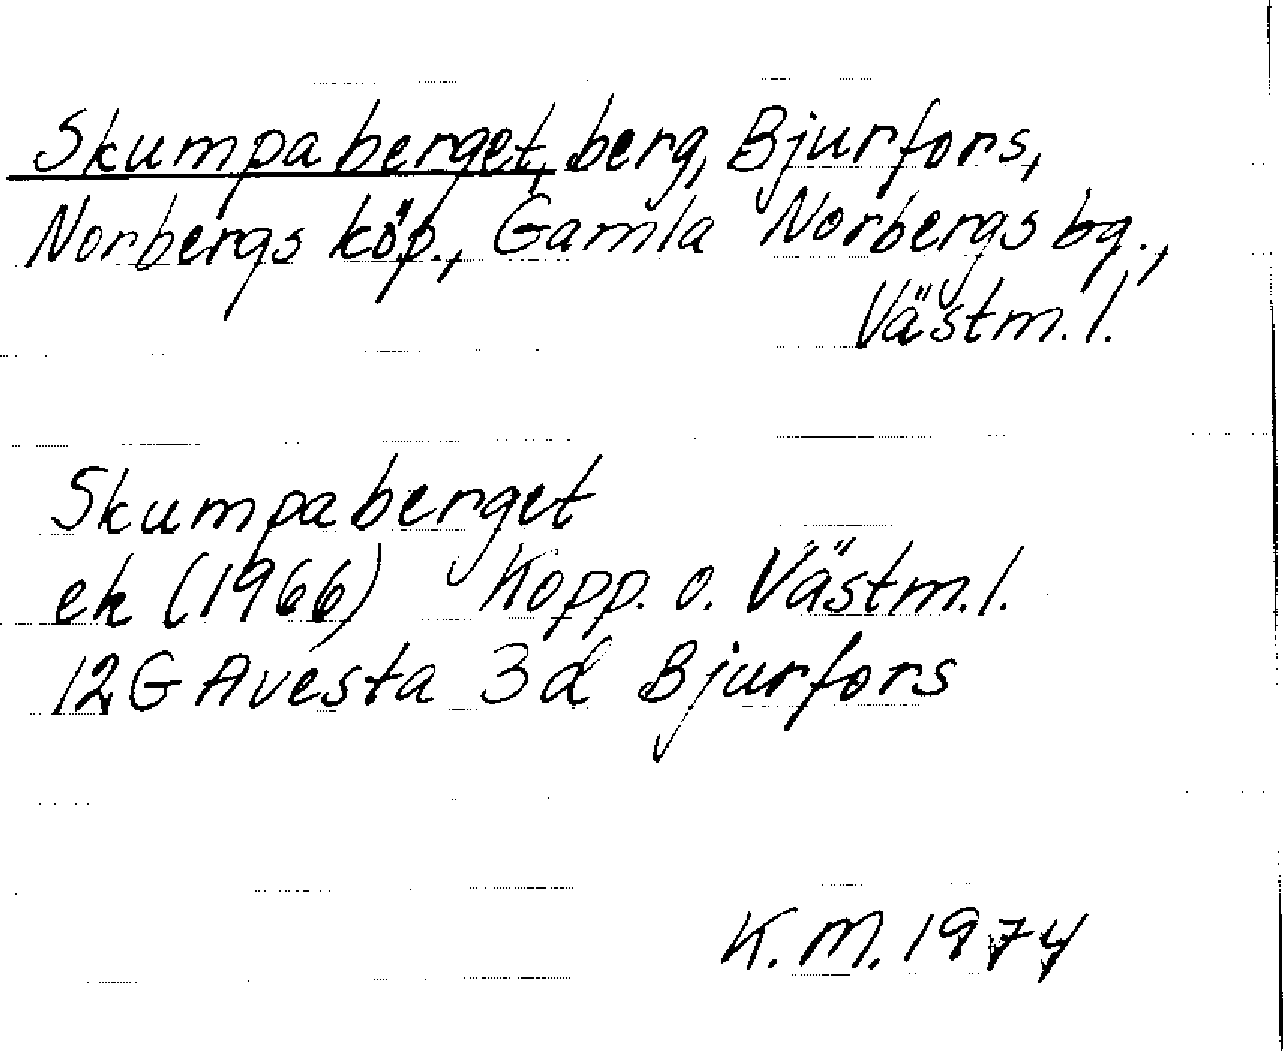 Skumpaberget, berg, Bjurfors,
Norbergs köp., Gamla Norbergs bg.,
Västm. l.
Skumpaberget
ek (1966) Kopp. o. Västm. l.
12G Avesta 3d Bjurfors
K. M. 1974